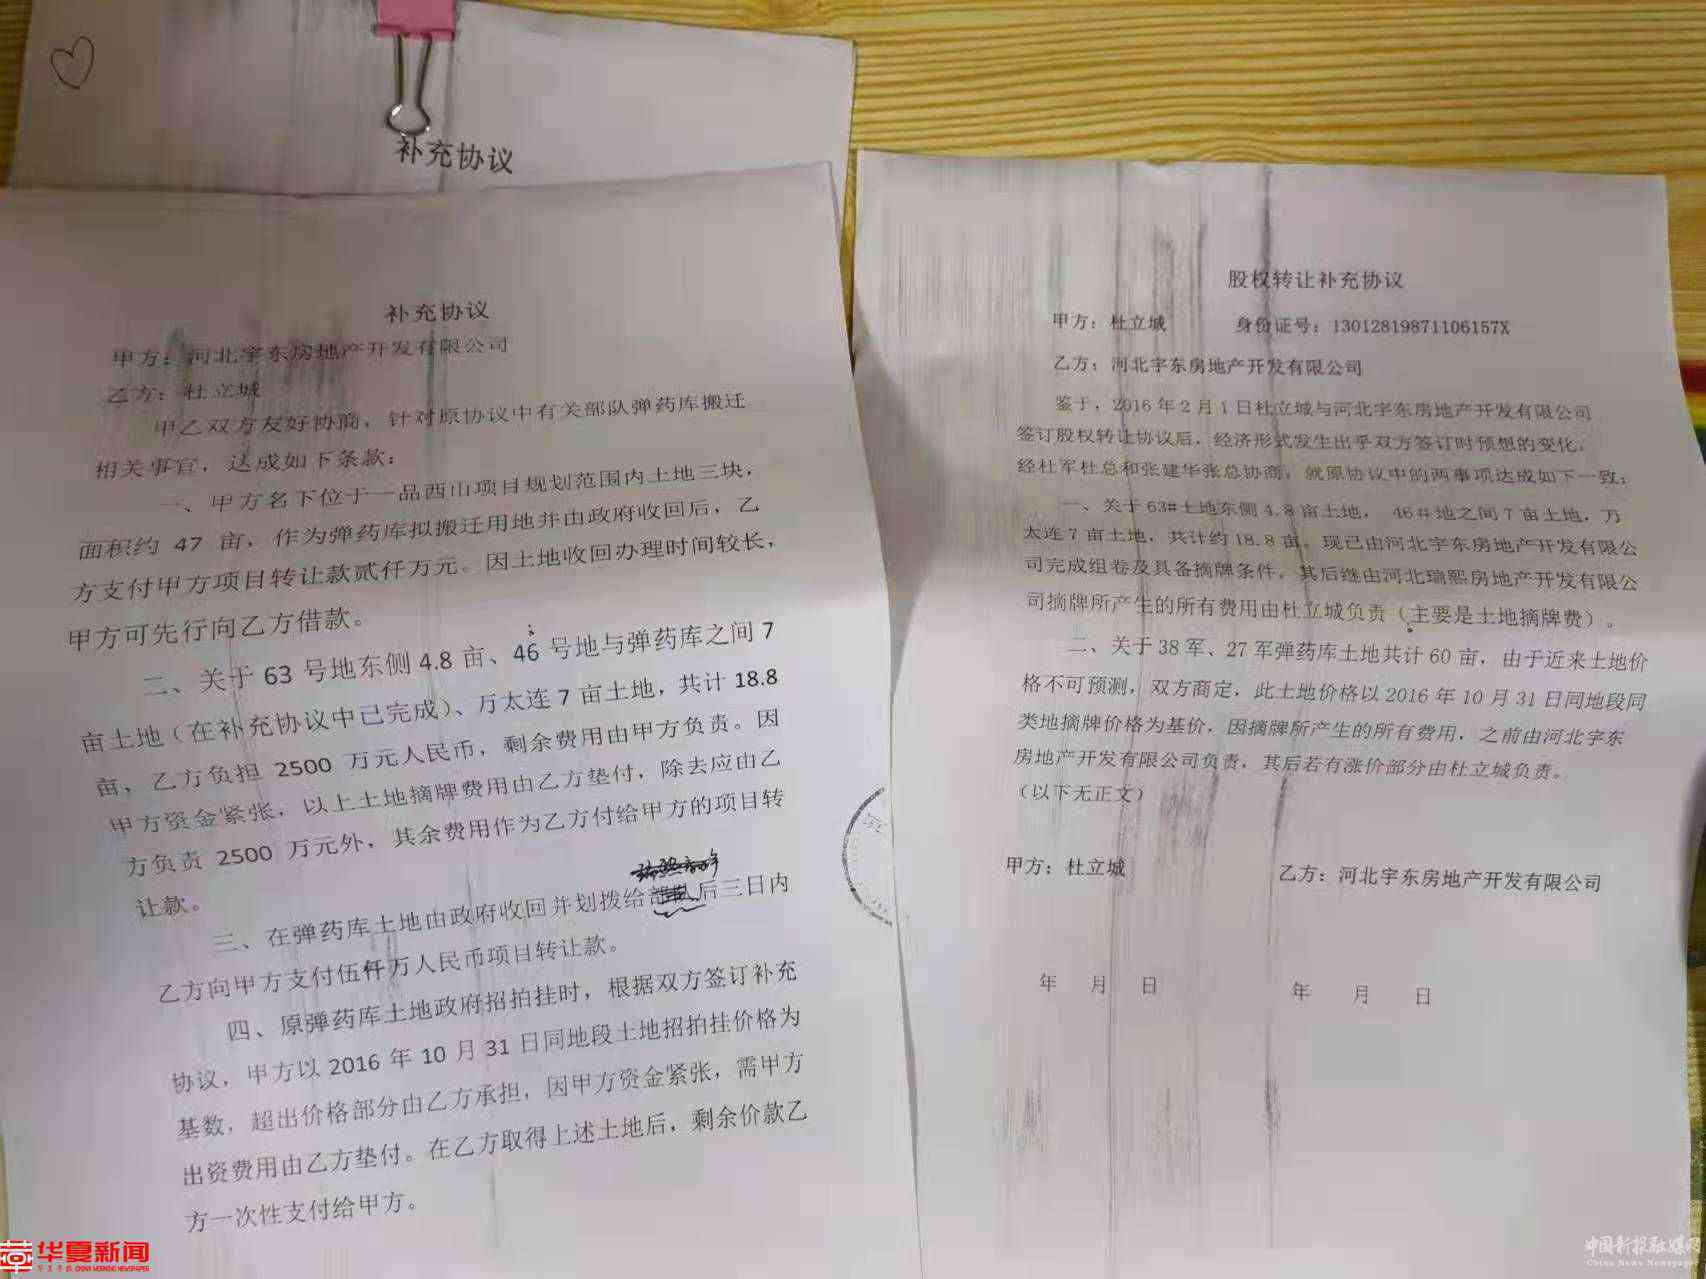 补充协议
补充协议
甲方：河北宇东房地产开发有限公司
乙方：杜立城
甲乙双方友好协商，针对原协议中有关部队弹药库搬迁
相关事宜，达成如下条款：
一、甲方名下位于一品西山项目规划范围内土地三块，
面积约 47 亩，作为弹药库拟搬迁用地并由政府收回后，乙
方支付甲方项目转让款贰仟万元。因土地收回办理时间较长，
甲方可先行向乙方借款。
二、关于 63 号地东侧 4.8 亩、46 号地与弹药库之间 7
亩土地（在补充协议中已完成）、万太连 7 亩土地，共计 18.8
亩，乙方负担 2500 万元人民币，剩余费用由甲方负责。因
甲方资金紧张，以上土地摘牌费用由乙方垫付，除去应由乙
方负责 2500 万元外，其余费用作为乙方付给甲方的项目转
让款。
三、在弹药库土地由政府收回并划拨给部队后三日内
乙方向甲方支付伍仟万人民币项目转让款。
四、原弹药库土地政府招拍挂时，根据双方签订补充
协议，甲方以 2016 年 10 月 31 日同地段土地招拍挂价格为
基数，超出价格部分由乙方承担，因甲方资金紧张，需甲方
出资费用由乙方垫付。在乙方取得上述土地后，剩余价款乙
方一次性支付给甲方。
股权转让补充协议
甲方：杜立城 身份证号：13012819871106157X
乙方：河北宇东房地产开发有限公司
鉴于，2016 年 2 月 1 日杜立城与河北宇东房地产开发有限公司
签订股权转让协议后，经济形式发生出乎双方签订时预想的变化，
经杜军杜总和张建华张总协商，就原协议中的两事项达成如下一致：
一、关于 63#土地东侧 4.8 亩土地， 46＃地之间 7 亩土地，万
太连 7 亩土地，共计约 18.8 亩。现已由河北宇东房地产开发有限公
司完成组卷及具备摘牌条件，其后继由河北瑞熙房地产开发有限公
司摘牌所产生的所有费用由杜立城负责（主要是土地摘牌费）。
二、关于 38 军、27 军弹药库土地共计 60 亩，由于近来土地价
格不可预测，双方商定，此土地价格以 2016 年 10 月 31 日同地段同
类地摘牌价格为基价，因摘牌所产生的所有费用，之前由河北宇东
房地产开发有限公司负责，其后若有涨价部分由杜立城负责。
（以下无正文）
甲方：杜立城 乙方：河北宇东房地产开发有限公司
年 月 日 年 月 日
华夏新闻
CHINA MORNING NEWSPAPER
中国新报融媒网
China News Newspaper